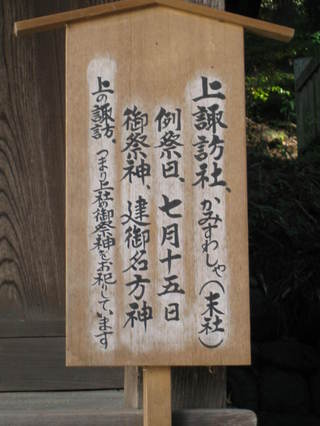 上諏訪社、かみすわしゃ(末社)
例祭日、七月十五日
御祭神、建御名方神
上の諏訪、つまり上社の御祭神をお祀りしています